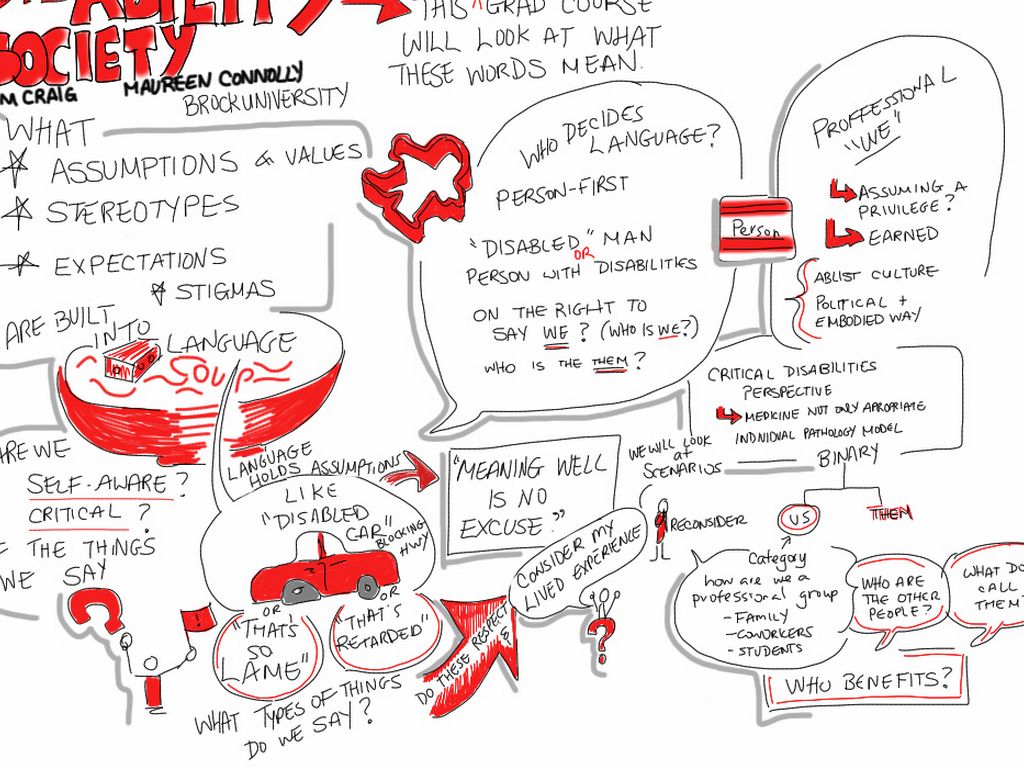 ABILITY
SOCIETY
M CRAIG
MAUREEN CONNOLLY
BROCKUNIVERSITY
THIS ^ GRAD COURSE
WILL LOOK AT WHAT
THESE WORDS MEAN.
WHAT
ASSUMPTIONS & VALUES
STEREOTYPES
EXPECTATIONS
STIGMAS
ARE BUILT
INTO
LANGUAGE
SOUP
ARE WE
SELF-AWARE?
CRITICAL?
F THE THINGS
WE SAY
LANGUAGE
HOLDS ASSUMPTIONS
LIKE
"DISABLED
CAR"
BLOCKING
HWY
OR
"THAT'S
SO
LAME"
OR
"THAT'S
RETARDED"
WHAT TYPES OF THINGS
DO WE SAY?
DO THESE RESPECT
&
"MEANING WELL
IS NO
EXCUSE."
CONSIDER MY
LIVED EXPERIENCE
?
WHO DECIDES
LANGUAGE?
PERSON-FIRST
"DISABLED" MAN
OR
PERSON WITH DISABILITIES
ON THE RIGHT TO
SAY WE? (WHO IS WE?)
WHO IS THE THEM?
Person
PROFFESSIONAL
"WE"
ASSUMING A
PRIVILEGE?
EARNED
ABLIST CULTURE
POLITICAL +
EMBODIED WAY
CRITICAL DISABILITIES
PERSPECTIVE
MEDICINE NOT ONLY APROPRIATE
INDIVIDUAL PATHOLOGY MODEL
BINARY
WE WILL LOOK
at
SCENARIOS
RECONSIDER
US
THEM
Category
how are we a
professional group
- FAMILY
- COWORKERS
- STUDENTS
WHO ARE
THE OTHER
PEOPLE?
WHAT DO
CALL
THEM
WHO BENEFITS?